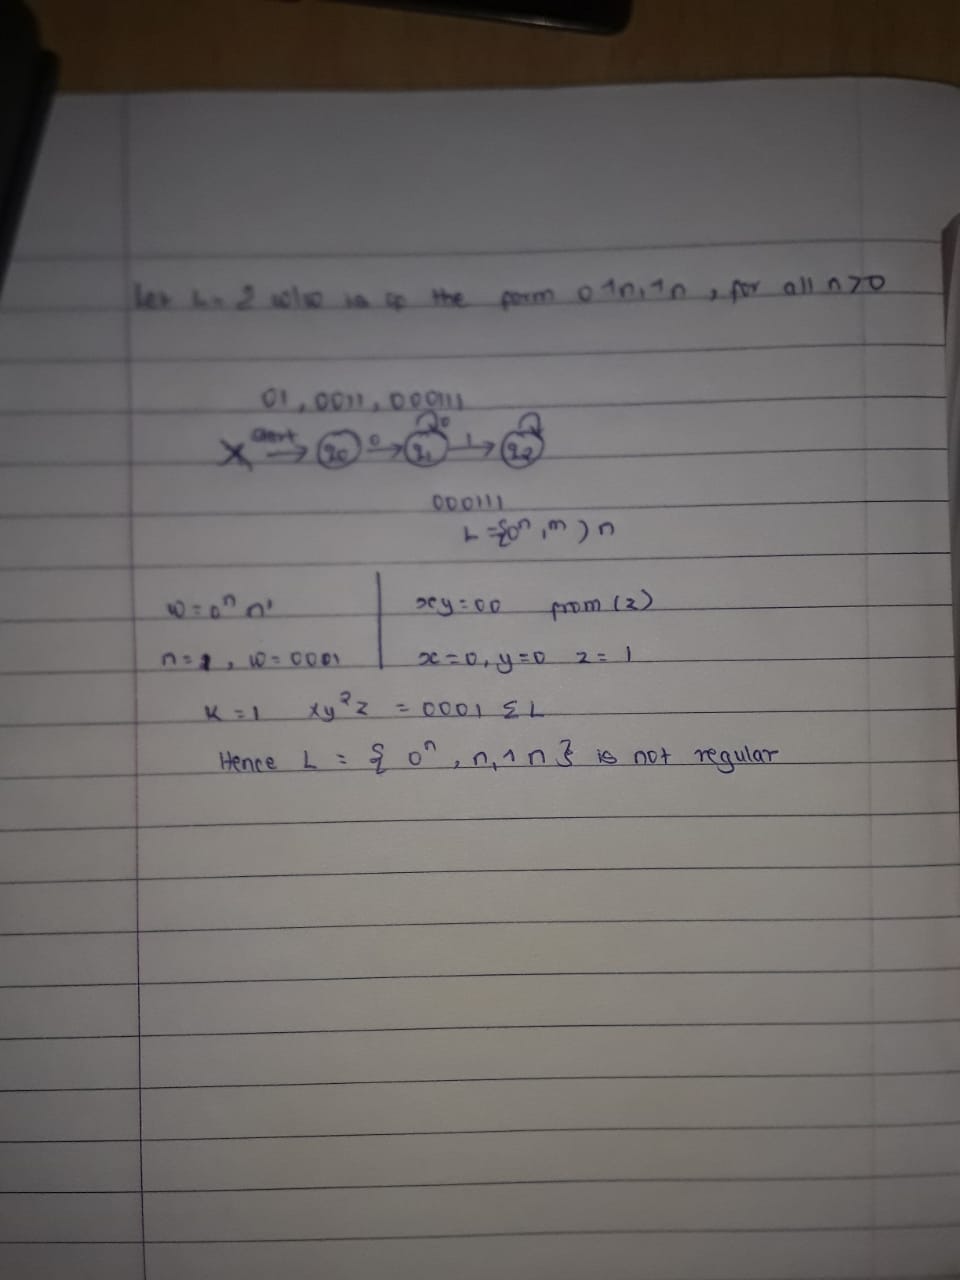 Let L = 2 w/w is of the form 0 1n,1n , for all n>0
01, 0011, 000111
start q0 0 q1 0 1 q2
000111
L = {0ⁿ, m ) n
w = 0ⁿ n'
n = 1 , w = 0001
xy = 00 from (2)
x = 0, y = 0 z = 1
K = 1 xy²z = 0001 Σ L
Hence L = { 0ⁿ , n, 1 n } is not regular